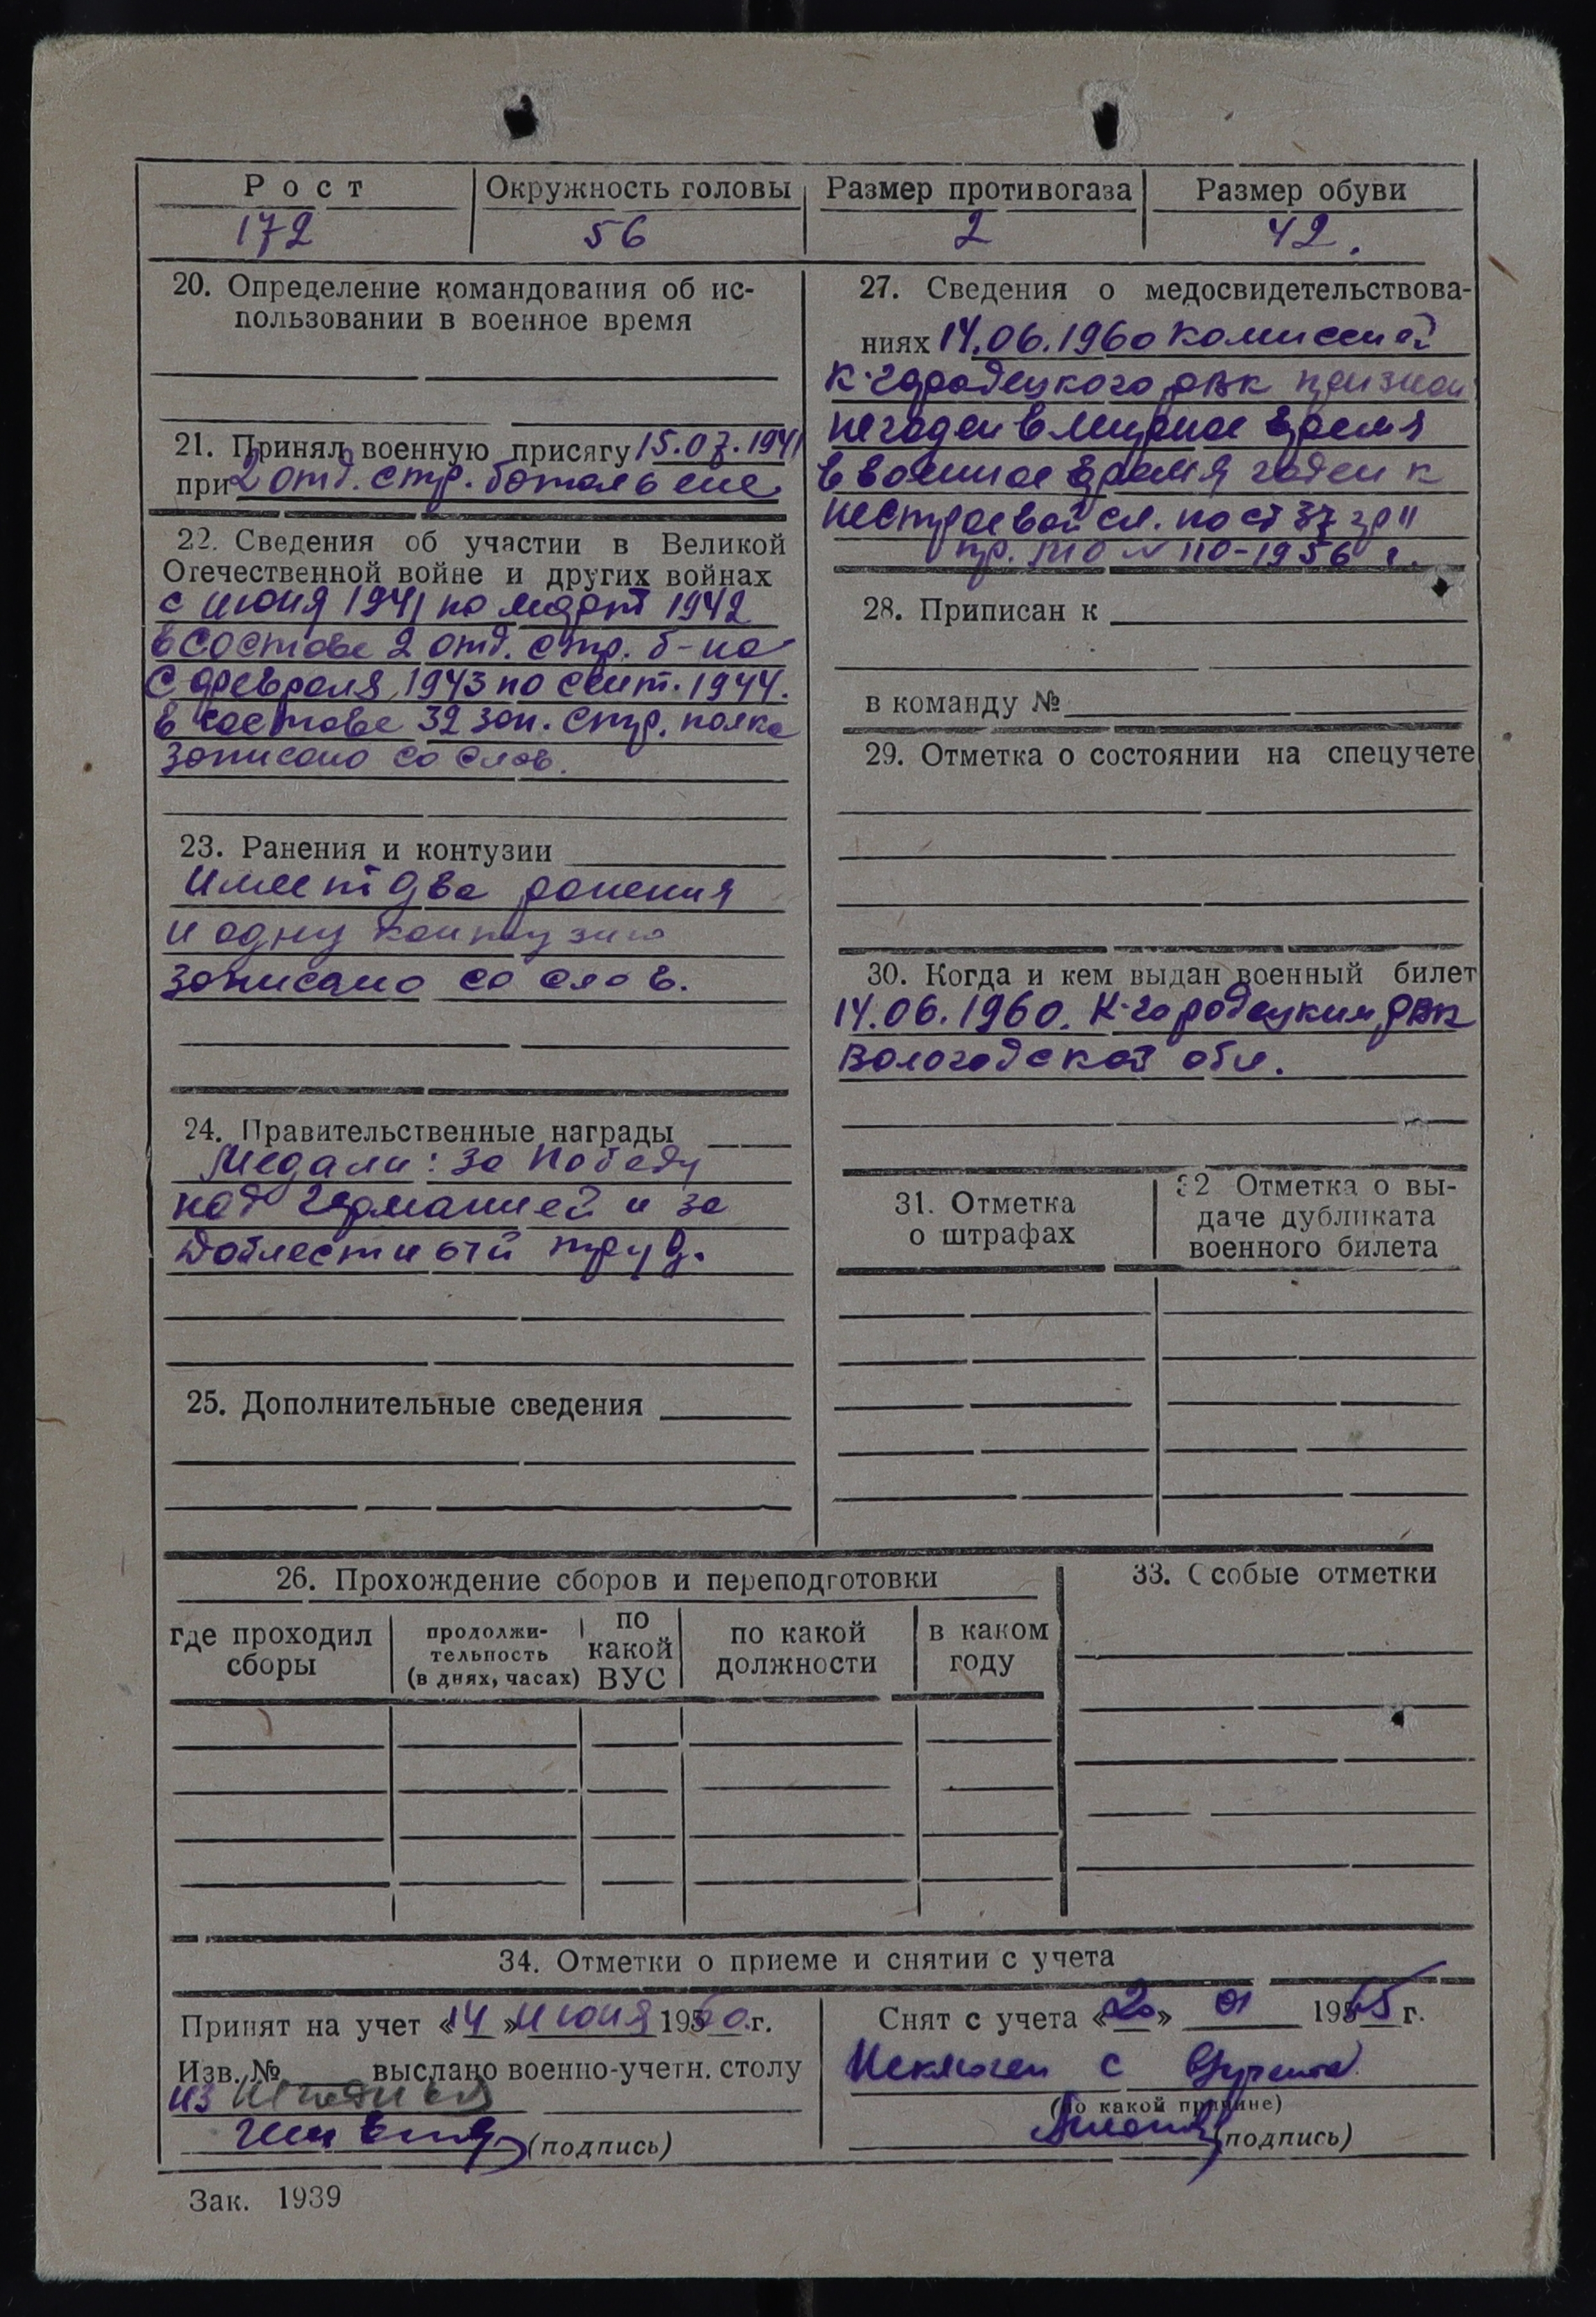 Рост
Окружность головы
Размер противогаза
Размер обуви
172
56
2
42.
20. Определение командования об ис-
пользовании в военное время
21. Принял военную присягу 15.07.1941
при 2 отд. стр. батальоне
22. Сведения об участии в Великой
Отечественной войне и других войнах
с июня 1941 по март 1942
в составе 2 отд. стр. б-на
с февраля 1943 по сент. 1944.
в составе 32 зап. стр. полка
записано со слов.
23. Ранения и контузии
Имеет два ранения
и одну контузию
записано со слов.
24. Правительственные награды
Медали: за Победу
над Германией и за
доблестный труд.
25. Дополнительные сведения
27. Сведения о медосвидетельствова-
ниях 14.06.1960 комиссией
К-городецкого РВК признан
негоден в мирное время
в военное время годен к
нестроевой сл. по ст 37 гр II
пр. МО № 110-1956 г.
28. Приписан к
в команду №
29. Отметка о состоянии на спецучете
30. Когда и кем выдан военный билет
14.06.1960. К-городецким РВК
Вологодской обл.
31. Отметка
о штрафах
32 Отметка о вы-
даче дубликата
военного билета
26. Прохождение сборов и переподготовки
где проходил
сборы
продолжи-
тельность
(в днях, часах)
по
какой
ВУС
по какой
должности
в каком
году
33. Особые отметки
34. Отметки о приеме и снятии с учета
Принят на учет «14» июня 1960 г.
Изв. № выслано военно-учетн. столу
из
(подпись)
Снят с учета «20» 01 1965 г.
Исключен с
(по какой причине)
(подпись)
Зак. 1939